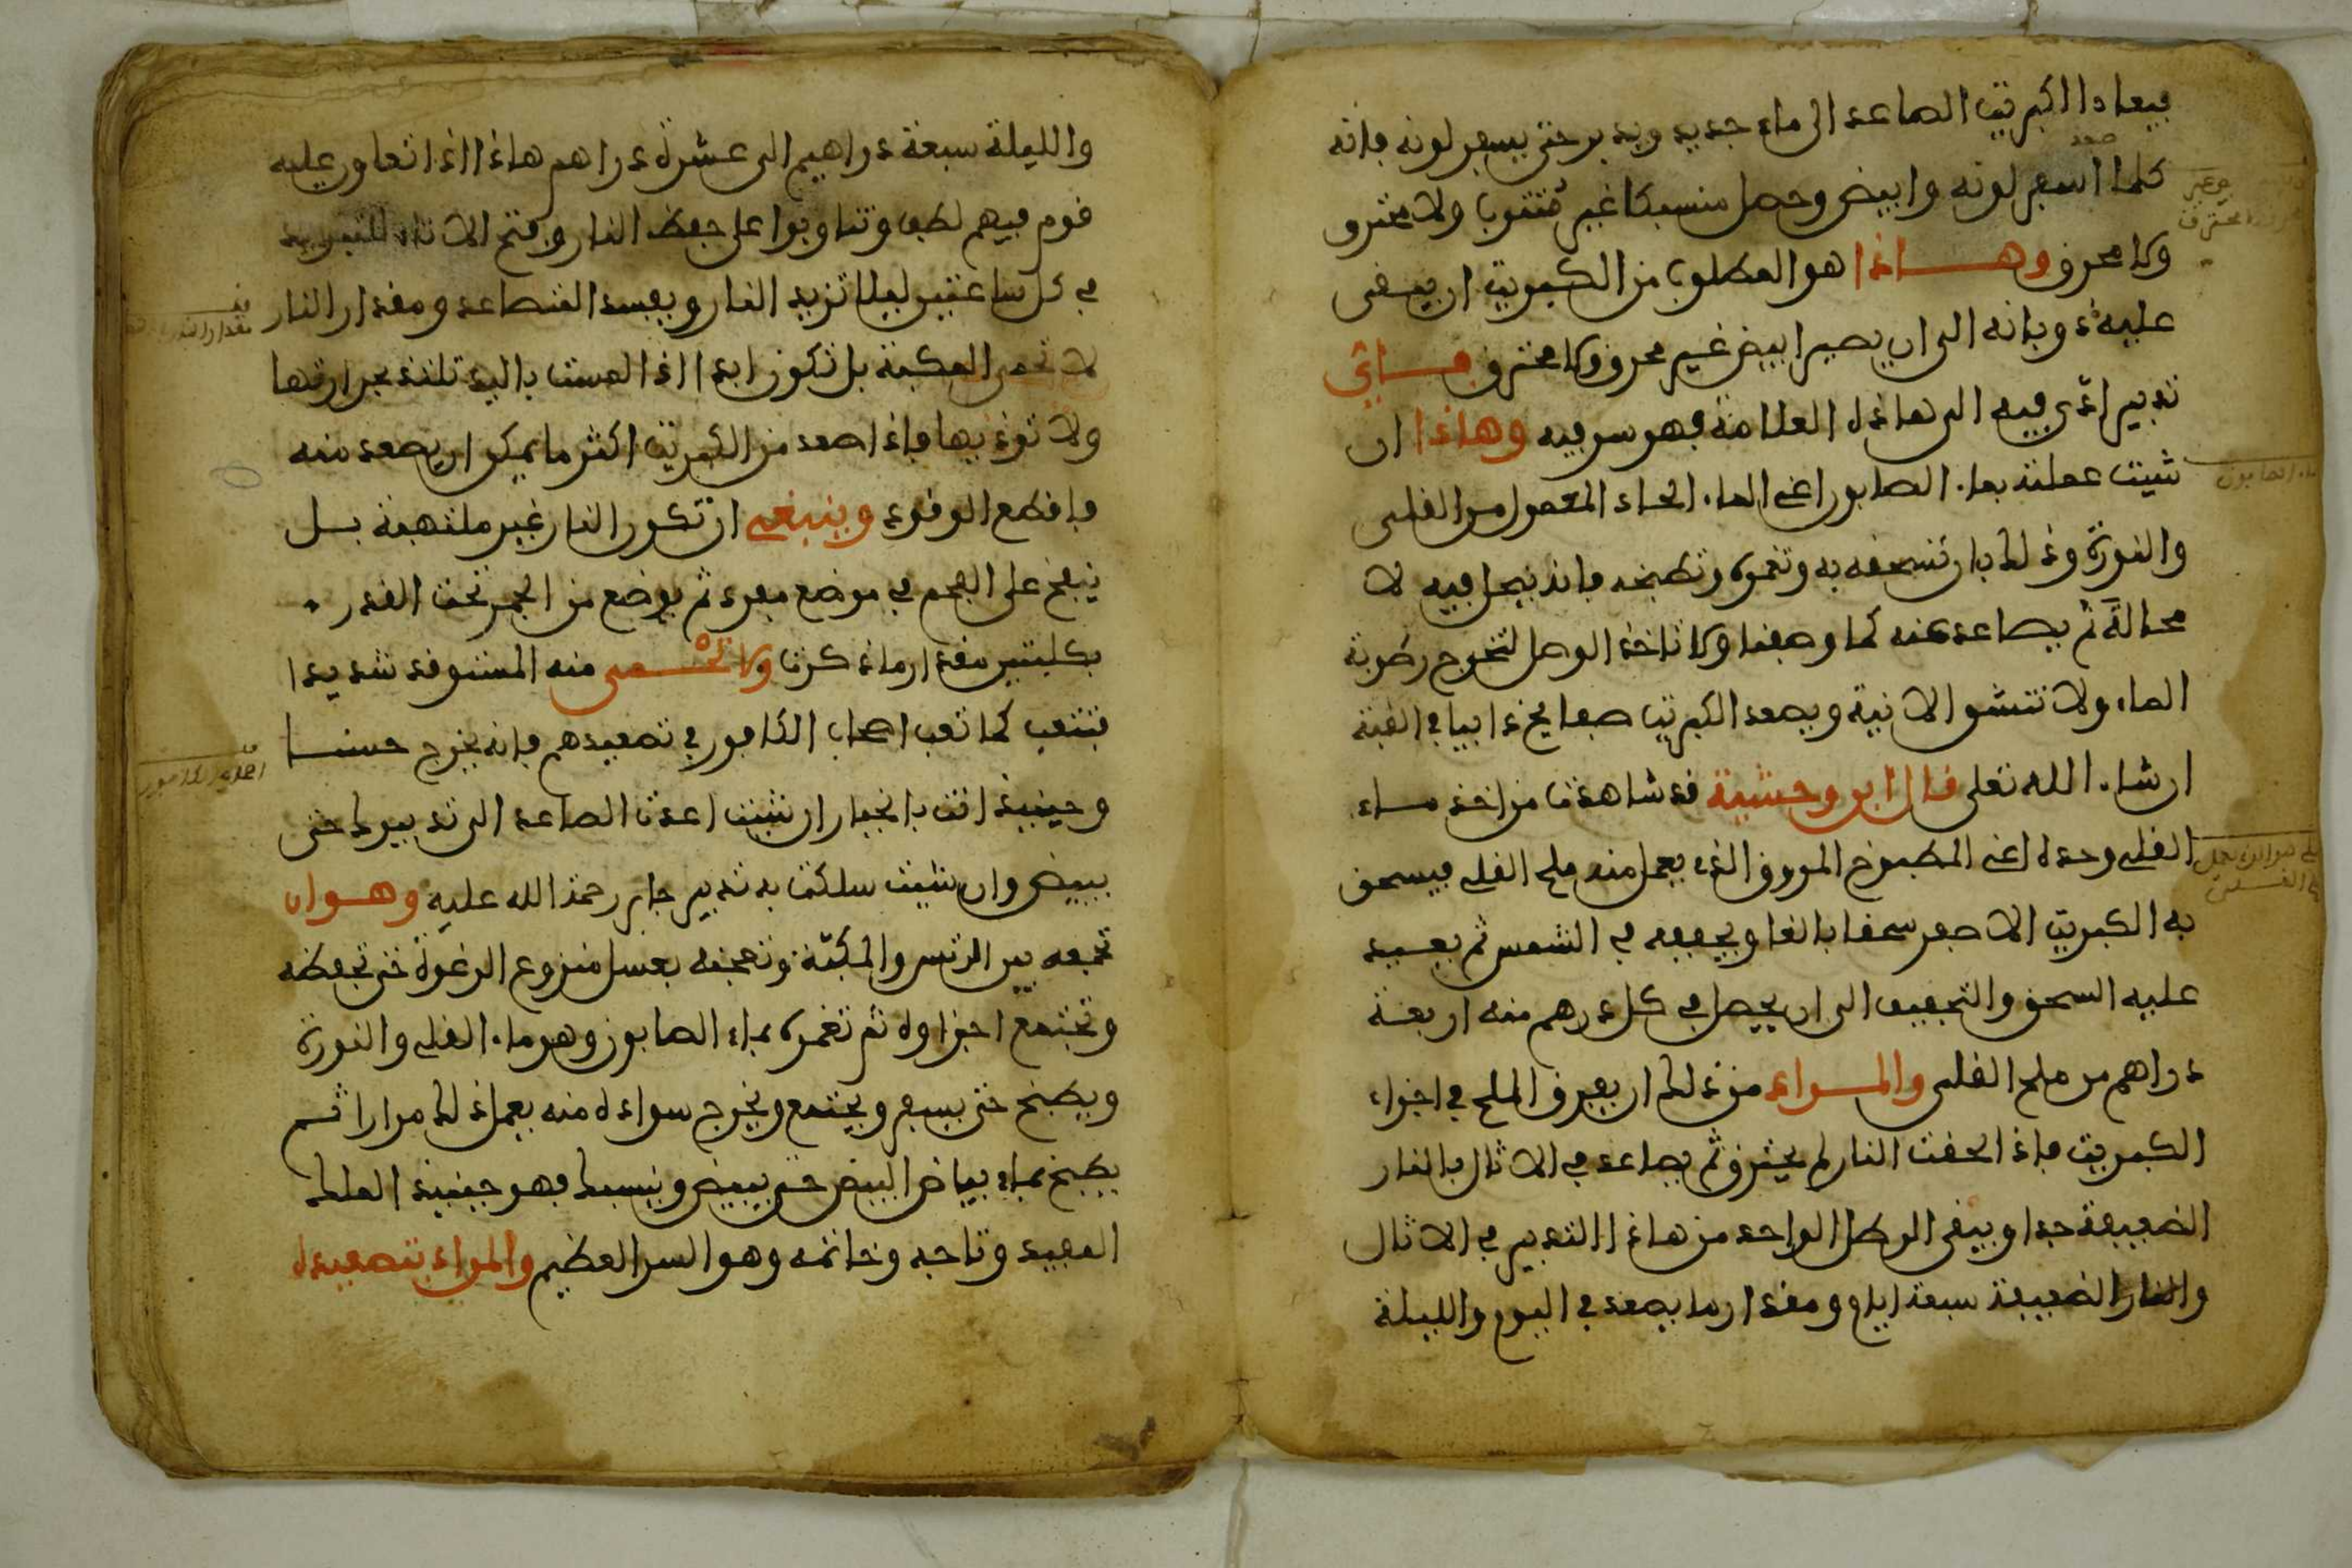 فيعاد الكبريت الصاعد الى ماء جديد ويدبر حتى يسفر لونه فانه
صعد
كلما اسفر لونه وابيض وحصل منسبكا غير مثقوب ولا محترق
ولا محرق وهاذا هو المطلوب من الكبريت ان يبقى
عليه ذوبانه الى ان يصير ابيض غير محرق ولا محترق فاي
تدبير ادى فيه الى هاذه العلامة فهو سر فيه وهاذا ان
شيت عملته بماء الصابون اعني الماء الحاد المعمول من القلى
والنورة وذلك بان تسحقه به وتغمره وتطبخه فانه ينحل فيه لا
محالة ثم يصاعد عنه كما وصفنا ولا تاخذ الوصل لتخرج رطوبة
الماء ولا تنشو الانية ويصعد الكبريت صفايح ذابيا في القبة
ان شاء الله تعلى قال ابن وحشية قد شاهدت من اخذ ماء
القلى وحده اعني المطبوخ المروق الذي يعمل منه ملح القلى فيسحق
به الكبريت الاصفر سحقا بالغا ويجففه في الشمس ثم يعيد
عليه السحق والتجفيف الى ان يحصل في كل درهم منه اربعة
دراهم من ملح القلى والمراد من ذلك ان يفرق الملح في اجزاء
الكبريت فاذا لحقت النار لم يحترق ثم يصاعد في الاثال بالنار
الضعيفة جدا ويبقى الرطل الواحد من هاذا التدبير في الاثال
والنار الضعيفة سبعة ايام ومقدار ما يصعد في اليوم والليلة
ماء الصابون
والليلة سبعة دراهيم الى عشرة دراهم هاذا اذا تعاور عليه
قوم فيهم لطف وتناوبوا على حفظ النار وفتح الاناء للتبريد
في كل ساعتين ليلا تزيد النار ويفسد المتصاعد ومقدار النار
لا تحمى المكبة بل تكون ابدا اذا لمست باليد تلتذ بحرارتها
ولا توذيها فاذا صعد من الكبريت اكثر ما يمكن ان يصعد منه
فاقطع الوقود وينبغي ان تكون النار غير ملتهبة بل
ينفخ على الفحم في موضع مفرد ثم يوضع من الجمر تحت القدر
بكلبتين مقدار ما ذكرت ولا تحمى منه المستوقد شديدا
فتتعب كما تعب اصحاب الكافور في تصعيدهم فانه يخرج حسنا
وحينيذ انت بالخيار ان شيت اعدت الصاعد الى تدبيرك حتى
يبيض وان شيت سلكت به تدبير جابر رحمة الله عليه وهو ان
تجمعه بين الترس والمكبة وتعجنه بعسل منزوع الرغوة حتى تحفظه
وتجتمع اجزاوه ثم تغمره بماء الصابون وهو ماء القلى والنورة
ويطبخ حتى يسفر ويجتمع ويخرج سواده منه يعمل ذلك مرارا ثم
يطبخ بماء بياض البيض حتى يبيض وينسبك فهو حينيذ الملك
المفيد وتاجه وخاتمه وهو السر العظيم والمراد بتصعيده
مقدار النار
اصحاب الكافور